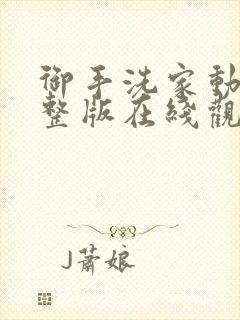 御手洗家動
整版在綫觀
J蕭娘